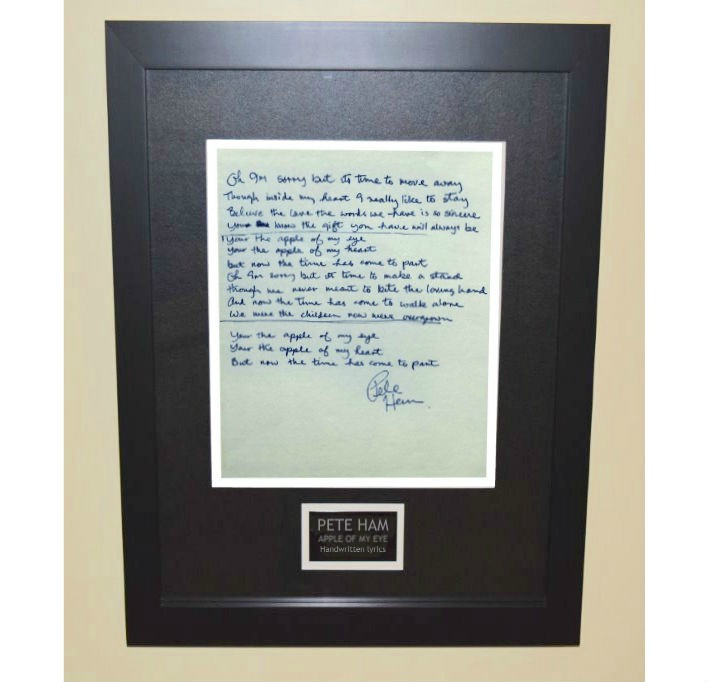 Oh I'm sorry but its time to move away
Though inside my heart I really like to stay
Believe the love the words we have is so sincere
You know the gift you have will always be
Your the apple of my eye
Your the apple of my heart
but now the time has come to part
Oh I'm sorry but its time to make a stand
though we never meant to bite the loving hand
And now the time has come to walk alone
We were the children now were overgrown
Your the apple of my eye
Your the apple of my heart
But now the time has come to part
Pete
Ham
PETE HAM
APPLE OF MY EYE
Handwritten lyrics